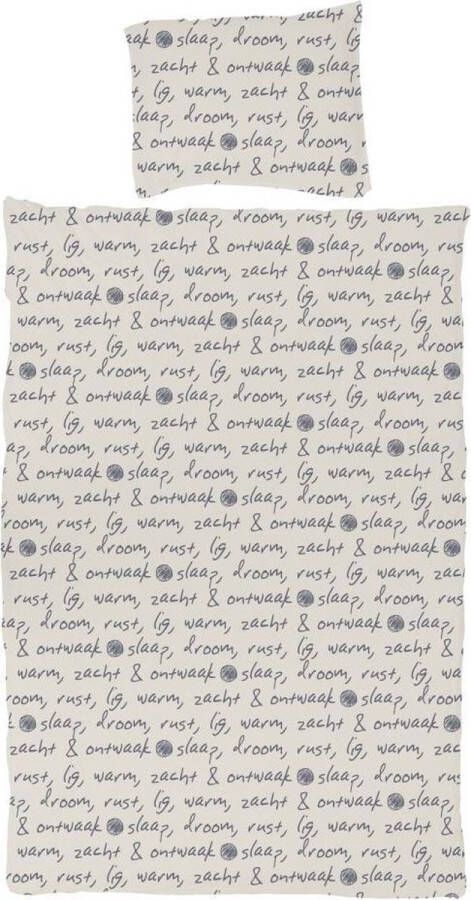 slaap, droom, rust,
zacht & ontwaak slaap,
rust, lig, warm, zacht &
slaap, droom, rust, lig,
zacht & ontwaak slaap
warm, zacht & ontwaak
zacht & ontwaak slaap, droom, rust, lig, warm,
rust, lig, warm, zacht & ontwaak slaap, droom, rus
ap, droom, rust, lig, warm, zacht & ontwaak slaap,
& ontwaak slaap, droom, rust, lig, warm, zacht
warm, zacht & ontwaak slaap, droom, rust, lig, wa
room, rust, lig, warm, zacht & ontwaak slaap, droom
k slaap, droom, rust, lig, warm, zacht & ontwaak
zacht & ontwaak slaap, droom, rust, lig, warm,
rust, lig, warm, zacht & ontwaak slaap, droom, rus
ap, droom, rust, lig, warm, zacht & ontwaak slaap,
& ontwaak slaap, droom, rust, lig, warm, zacht &
warm, zacht & ontwaak slaap, droom, rust, lig, wa
room, rust, lig, warm, zacht & ontwaak slaap, droom
k slaap, droom, rust, lig, warm, zacht & ontwaak
zacht & ontwaak slaap, droom, rust, lig, warm,
rust, lig, warm, zacht & ontwaak slaap, droom, rus
ap, droom, rust, lig, warm, zacht & ontwaak slaap,
& ontwaak slaap, droom, rust, lig, warm, zacht &
warm, zacht & ontwaak slaap, droom, rust, lig, wa
room, rust, lig, warm, zacht & ontwaak slaap, droom
slaap, droom, rust, lig, warm, zacht & ontwaak
zacht & ontwaak slaap, droom, rust, lig, warm,
rust, lig, warm, zacht & ontwaak slaap, droom, rus
ap, droom, rust, lig, warm, zacht & ontwaak slaap,
& ontwaak slaap, droom, rust, lig, warm, zacht &
warm, zacht & ontwaak slaap, droom, rust, lig, wa
room, rust, lig, warm, zacht & ontwaak slaap, droom